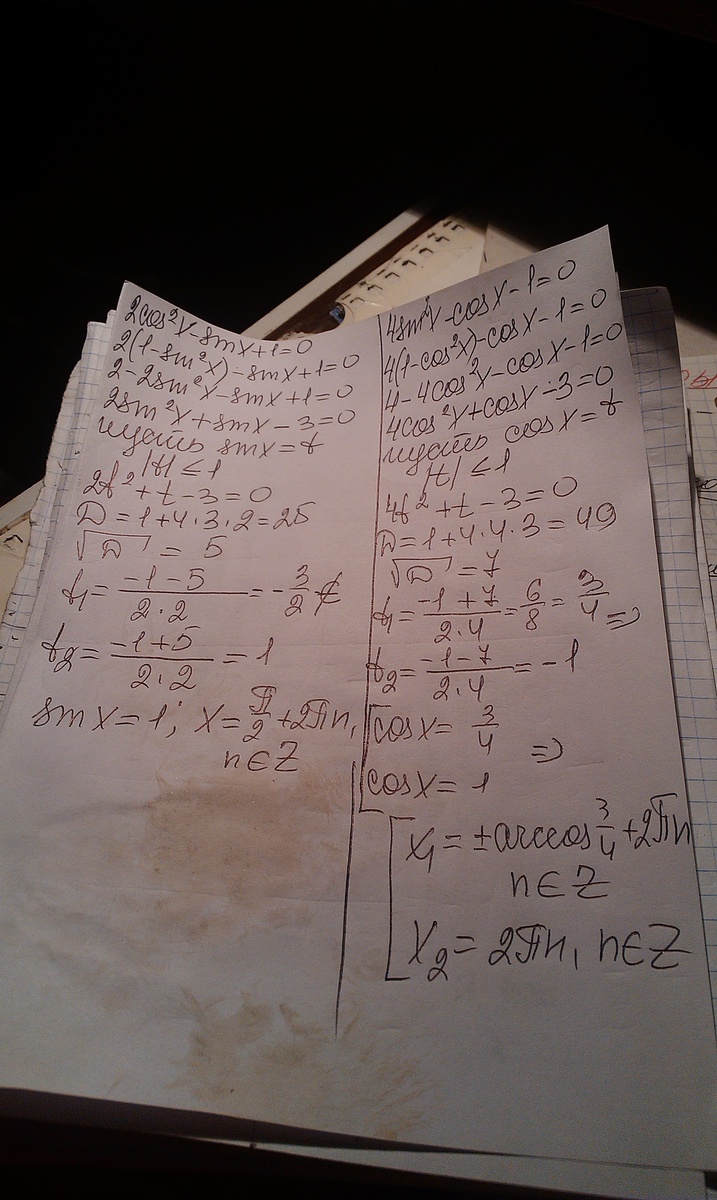 2cos²x-sinx+1=0
2(1-sin²x)-sinx+1=0
2-2sin²x-sinx+1=0
2sin²x+sinx-3=0
пусть sinx=t
|t|≤1
2t²+t-3=0
D=1+4·3·2=25
√D=5
t₁=(-1-5)/(2·2)=-3/2 ∉
t₂=(-1+5)/(2·2)=1
sinx=1; x=π/2+2πn,
n∈Z
4sin²x-cosx-1=0
4(1-cos²x)-cosx-1=0
4-4cos²x-cosx-1=0
4cos²x+cosx-3=0
пусть cosx=t
|t|≤1
4t²+t-3=0
D=1+4·4·3=49
√D=7
t₁=(-1+7)/(2·4)=6/8=3/4 =>
t₂=(-1-7)/(2·4)=-1
[cosx=3/4
=>
cosx=1
[x₁=±arccos 3/4+2πn
n∈Z
x₂=2πn, n∈Z